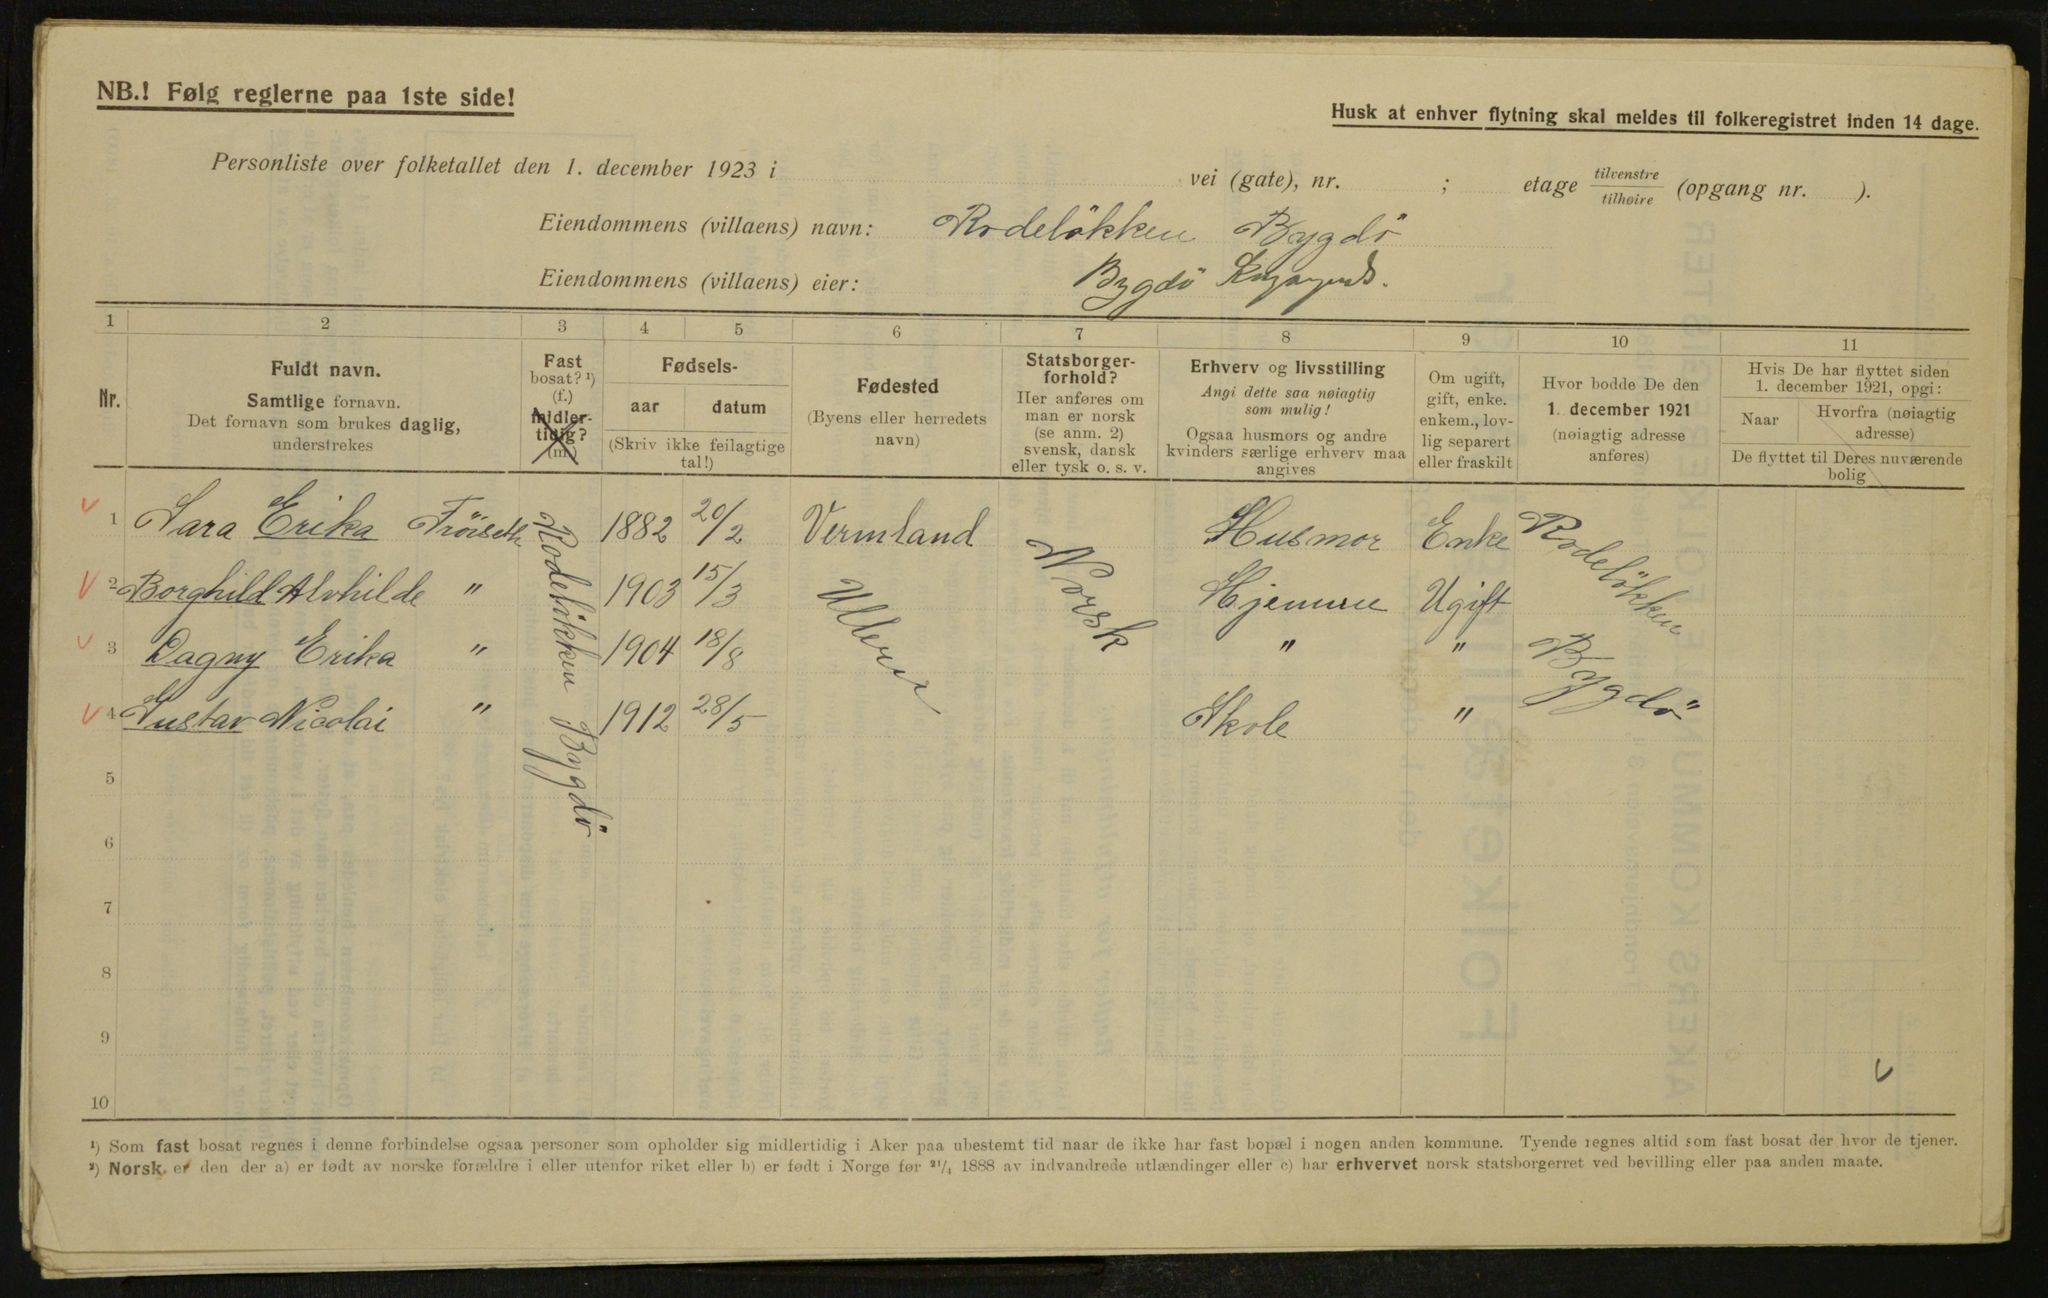 NB.! Følg reglerne paa 1ste side!
Husk at enhver flytning skal meldes til folkeregistret inden 14 dage.
Personliste over folketallet den 1. december 1923 i vei (gate), nr. ; etage tilvenstre tilhøire (opgang nr. ).
Eiendommens (villaens) navn: Rodeløkken Bygdö
Eiendommens (villaens) eier: Bygdö
1 2 3 4 5 6 7 8 9 10 11
Nr.
Fuldt navn.
Samtlige fornavn.
Det fornavn som brukes daglig,
understrekes
Fast
bosat? ¹)
(f.)
midler-
tidig?
(m.)
Fødsels-
aar datum
(Skriv ikke feilagtige
tal!)
Fødested
(Byens eller herredets
navn)
Statsborger-
forhold?
Her anføres om
man er norsk
(se anm. 2)
svensk, dansk
eller tysk o. s. v.
Erhverv og livsstilling
Angi dette saa nøiagtig
som mulig!
Ogsaa husmors og andre
kvinders særlige erhverv maa
angives
Om ugift,
gift, enke.
enkem., lov-
lig separert
eller fraskilt
Hvor bodde De den
1. december 1921
(nøiagtig adresse
anføres)
Hvis De har flyttet siden
1. december 1921, opgi:
Naar
Hvorfra (nøiagtig
adresse)
De flyttet til Deres nuværende
bolig
1 Sara Erika Fröiseth 1882 20/2 Vermland Husmor Enke
2 Borghild Alvhilde " 1903 15/3 Hjemme Ugift
3 Dagny Erika " 1904 18/8 " "
4 Gustav Nicolai " 1912 28/5 Skole "
Rodelökken Bygdö
Ullern
Norsk
Rodelökken
Bygdö
5
6
7
8
9
10
¹) Som fast bosat regnes i denne forbindelse ogsaa personer som opholder sig midlertidig i Aker paa ubestemt tid naar de ikke har fast bopæl i nogen anden kommune. Tyende regnes altid som fast bosat der hvor de tjener.
²) Norsk er den der a) er født av norske forældre i eller utenfor riket eller b) er født i Norge før ²¹/₄ 1888 av indvandrede utlændinger eller c) har erhvervet norsk statsborgerret ved bevilling eller paa anden maate.